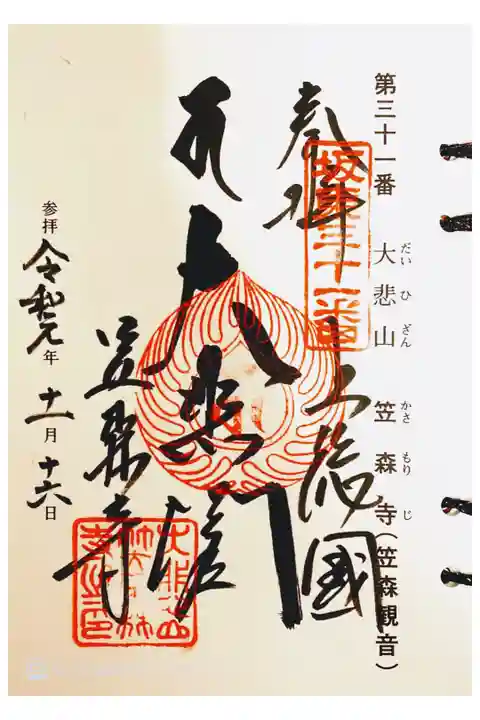 第三十一番 大悲山 笠森寺(笠森観音)
だいひざん かさもりじ
奉拝
坂東三十一番
上総國
大悲
笠森寺
参拝 令和元年 十一月 十六日